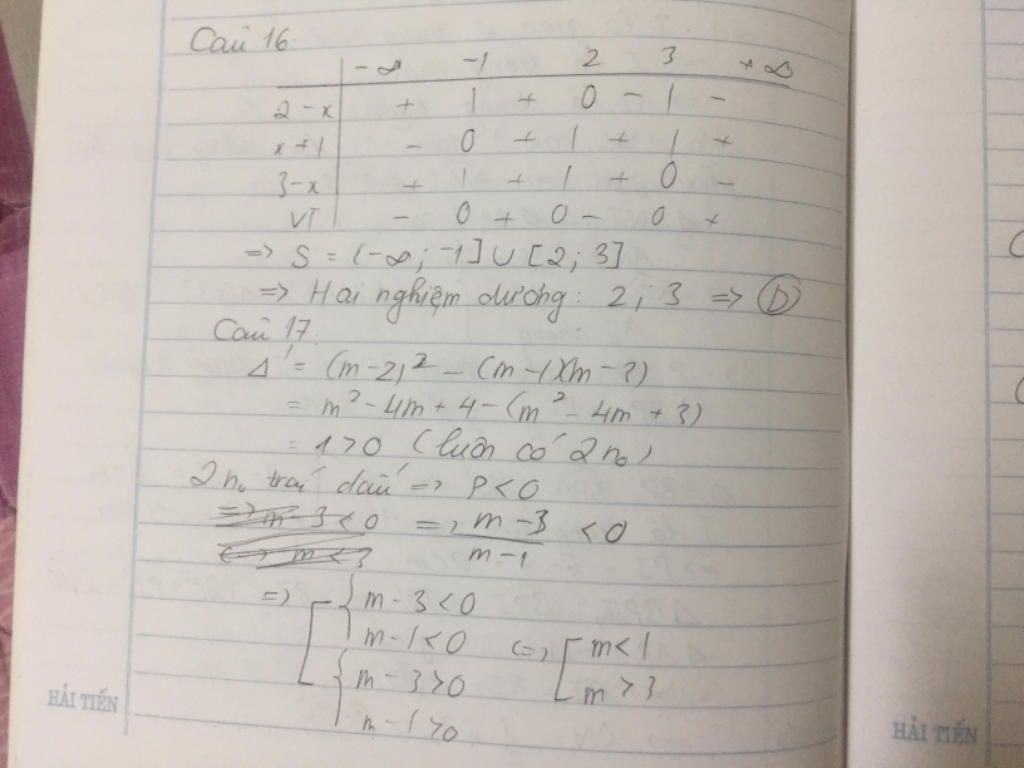 Câu 16
-∞ -1 2 3 +∞
2-x + | + 0 - | -
x+1 - 0 + | + | +
3-x + | + | + 0 -
VT - 0 + 0 - 0 +
=> S = (-∞; -1] ∪ [2; 3]
=> Hai nghiệm dương: 2; 3 => D
Câu 17:
Δ' = (m-2)² - (m-1)(m-3)
= m² - 4m + 4 - (m² - 4m + 3)
= 1 > 0 (luôn có 2 no)
2 no trái dấu => P < 0
=> m-3 < 0 => m-3 / m-1 < 0
<=> m < 3
=> [ { m-3 < 0
m-1 < 0 <=> [ m < 1
{ m-3 > 0 m > 3
m-1 > 0
HẢI TIẾN
HẢI TIẾN